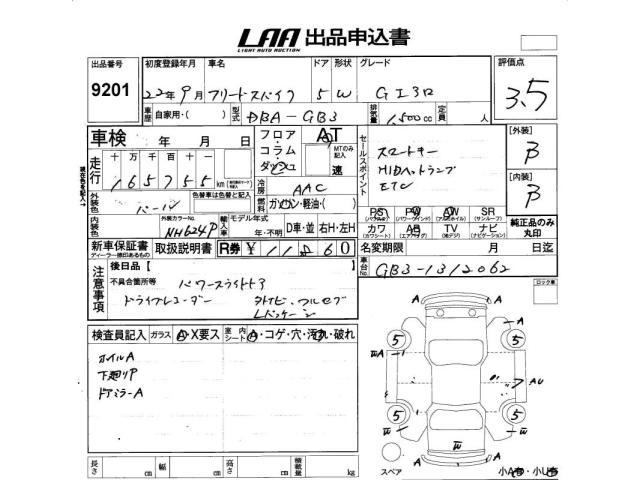 LAA 出品申込書
LIGHT AUTO AUCTION
出品番号
9201
初度登録年月 車名 ドア 形状 グレード
22年9月 フリードスパイク 5 W GI3ロ
評価点
3.5
車歴 自家用・( ) 型式 DBA-GB3 排気量 1,500cc 定員 人
車検 年 月 日
フロア・コラム・ダッシュ
AT
MTのみ記入
速
セールスポイント
スマートキー
HIDヘッドランプ
ETC
[外装]
B
[内装]
B
走行
十 万 千 百 十 一
165755km
冷房 AAC
外装色 パール
色替車は色替と記入
燃料 ガソリン・軽油・( )
内装色
外装カラーNo.
NH624P
輸入車 モデル年式
年・不明 D車・並 右H・左H
PS PW AW SR
(パワステ) (パワーウインド) (アルミホイル) (サンルーフ)
カワ AB TV ナビ
(カワシート) (エアバッグ) (地デジ) (ナビゲーション)
純正品のみ丸印
新車保証書 取扱説明書 R券 ¥ 11860
ディーラー捺印あるもの
名変期限 月 日迄
車台No. GB3-1312062
注意事項
後日品〔
不具合箇所等 パワースライドドア
ドライブレコーダー
ロック車
検査員記入 ガラス A・X要ス 室内シート A・コゲ・穴・汚れ・破れ
ホイルA
下廻りP
ドアミラーA
A
5 5
A
AU
5 5
W
スペア
小A・小U
長さ cm 幅 cm 高さ cm 積載量 kg